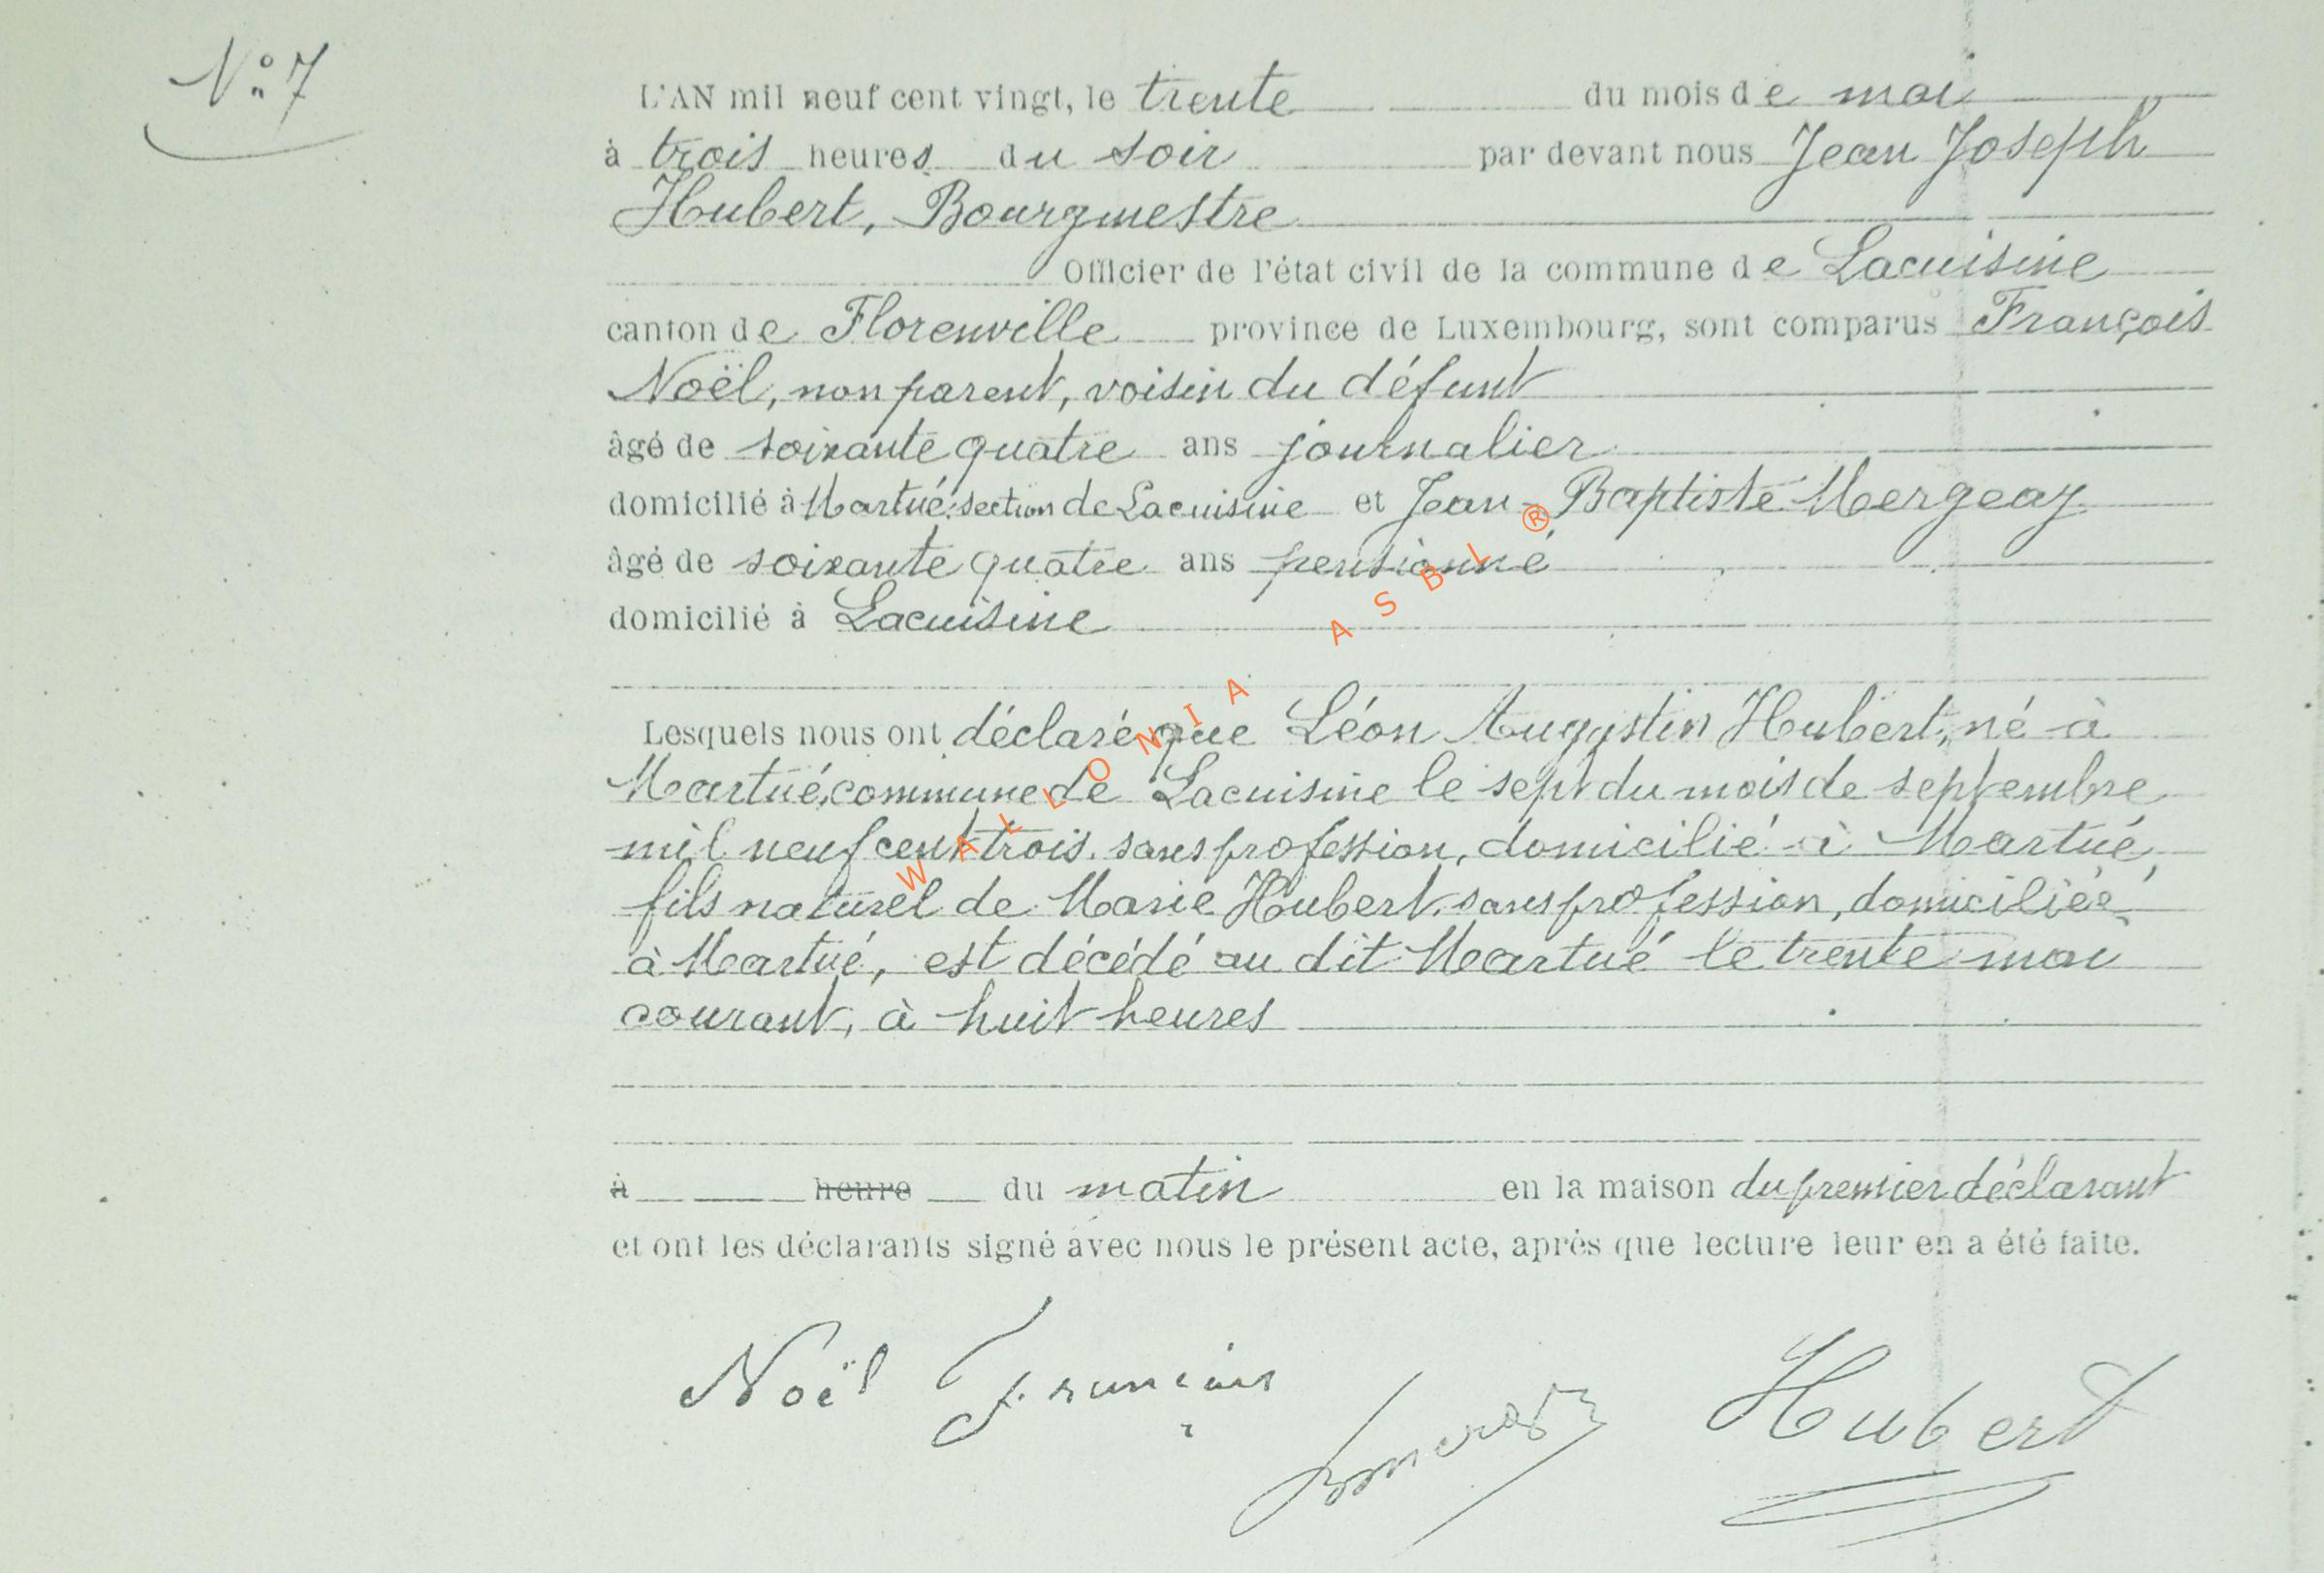 N° 7
L'AN mil neuf cent vingt, le trente du mois de mai
à trois heures du soir par devant nous Jean Joseph
Hubert, Bourgmestre
Officier de l'état civil de la commune de Lacuisine
canton de Florenville province de Luxembourg, sont comparus François
Noël, non parent, voisin du défunt
âgé de soixante quatre ans journalier
domicilié à Martué, section de Lacuisine et Jean-Baptiste Mergeay
âgé de soixante quatre ans pensionné
domicilié à Lacuisine
Lesquels nous ont déclaré que Léon Augustin Hubert, né à
Martué, commune de Lacuisine le sept du mois de septembre
mil neuf cent trois, sans profession, domicilié à Martué,
fils naturel de Marie Hubert, sans profession, domiciliée
à Martué, est décédé au dit Martué le trente mai
courant, à huit heures
à heure du matin en la maison du premier déclarant
et ont les déclarants signé avec nous le présent acte, après que lecture leur en a été faite.
Noël François
Hubert
WALLONIA ASBL ®